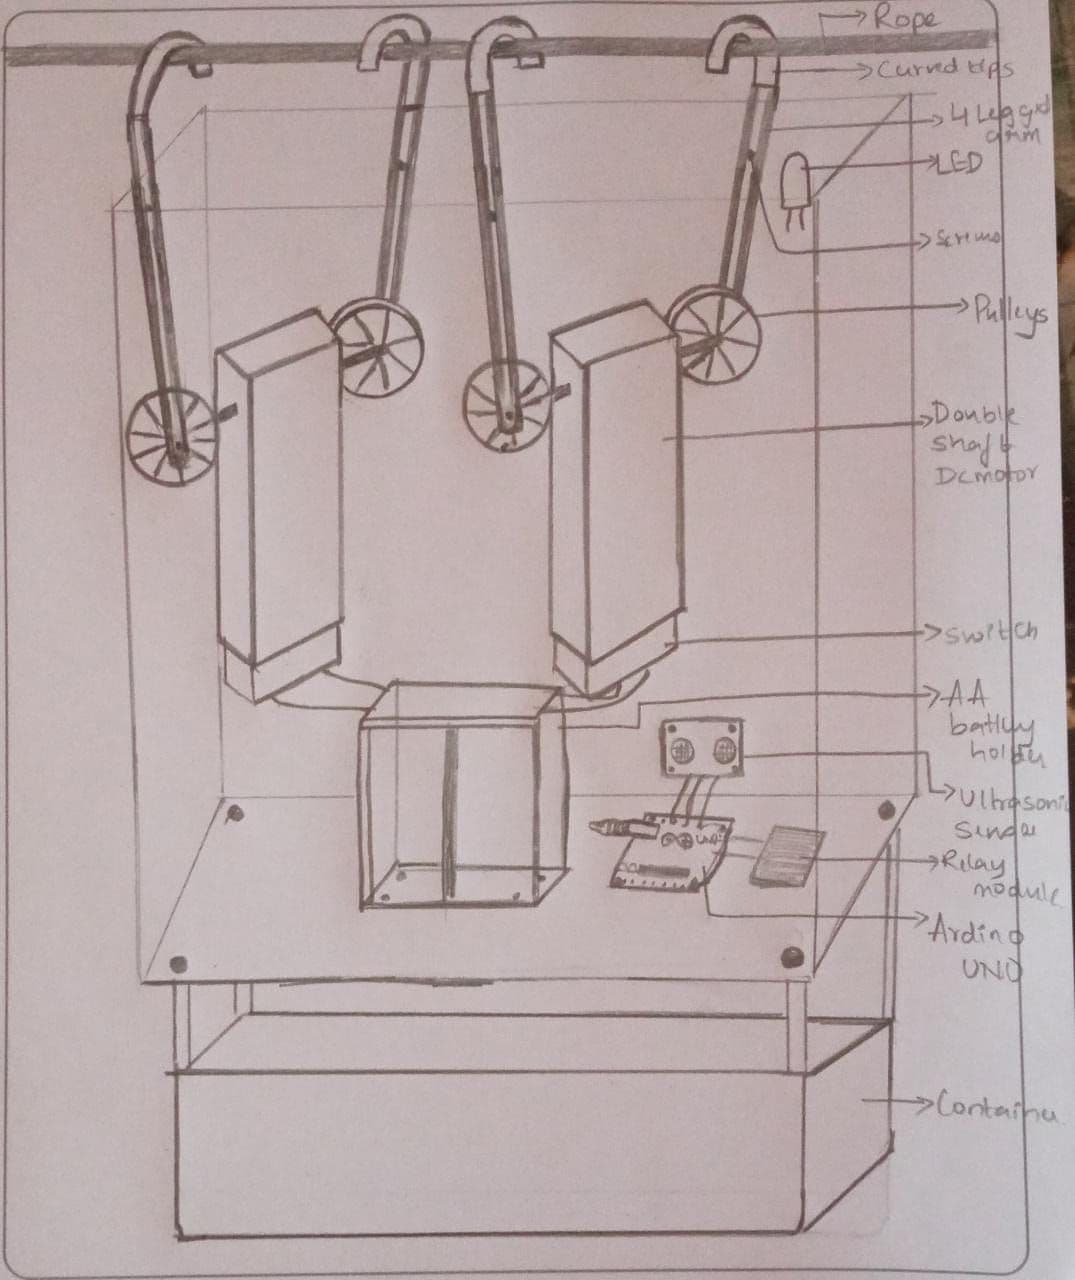 Rope
Curved tips
4 Legged
arm
LED
Screws
Pulleys
Double
shaft
Dc motor
Switch
AA
battery
holder
Ultrasonic
Sensor
Relay
module
UNO
Ardino
UNO
Container